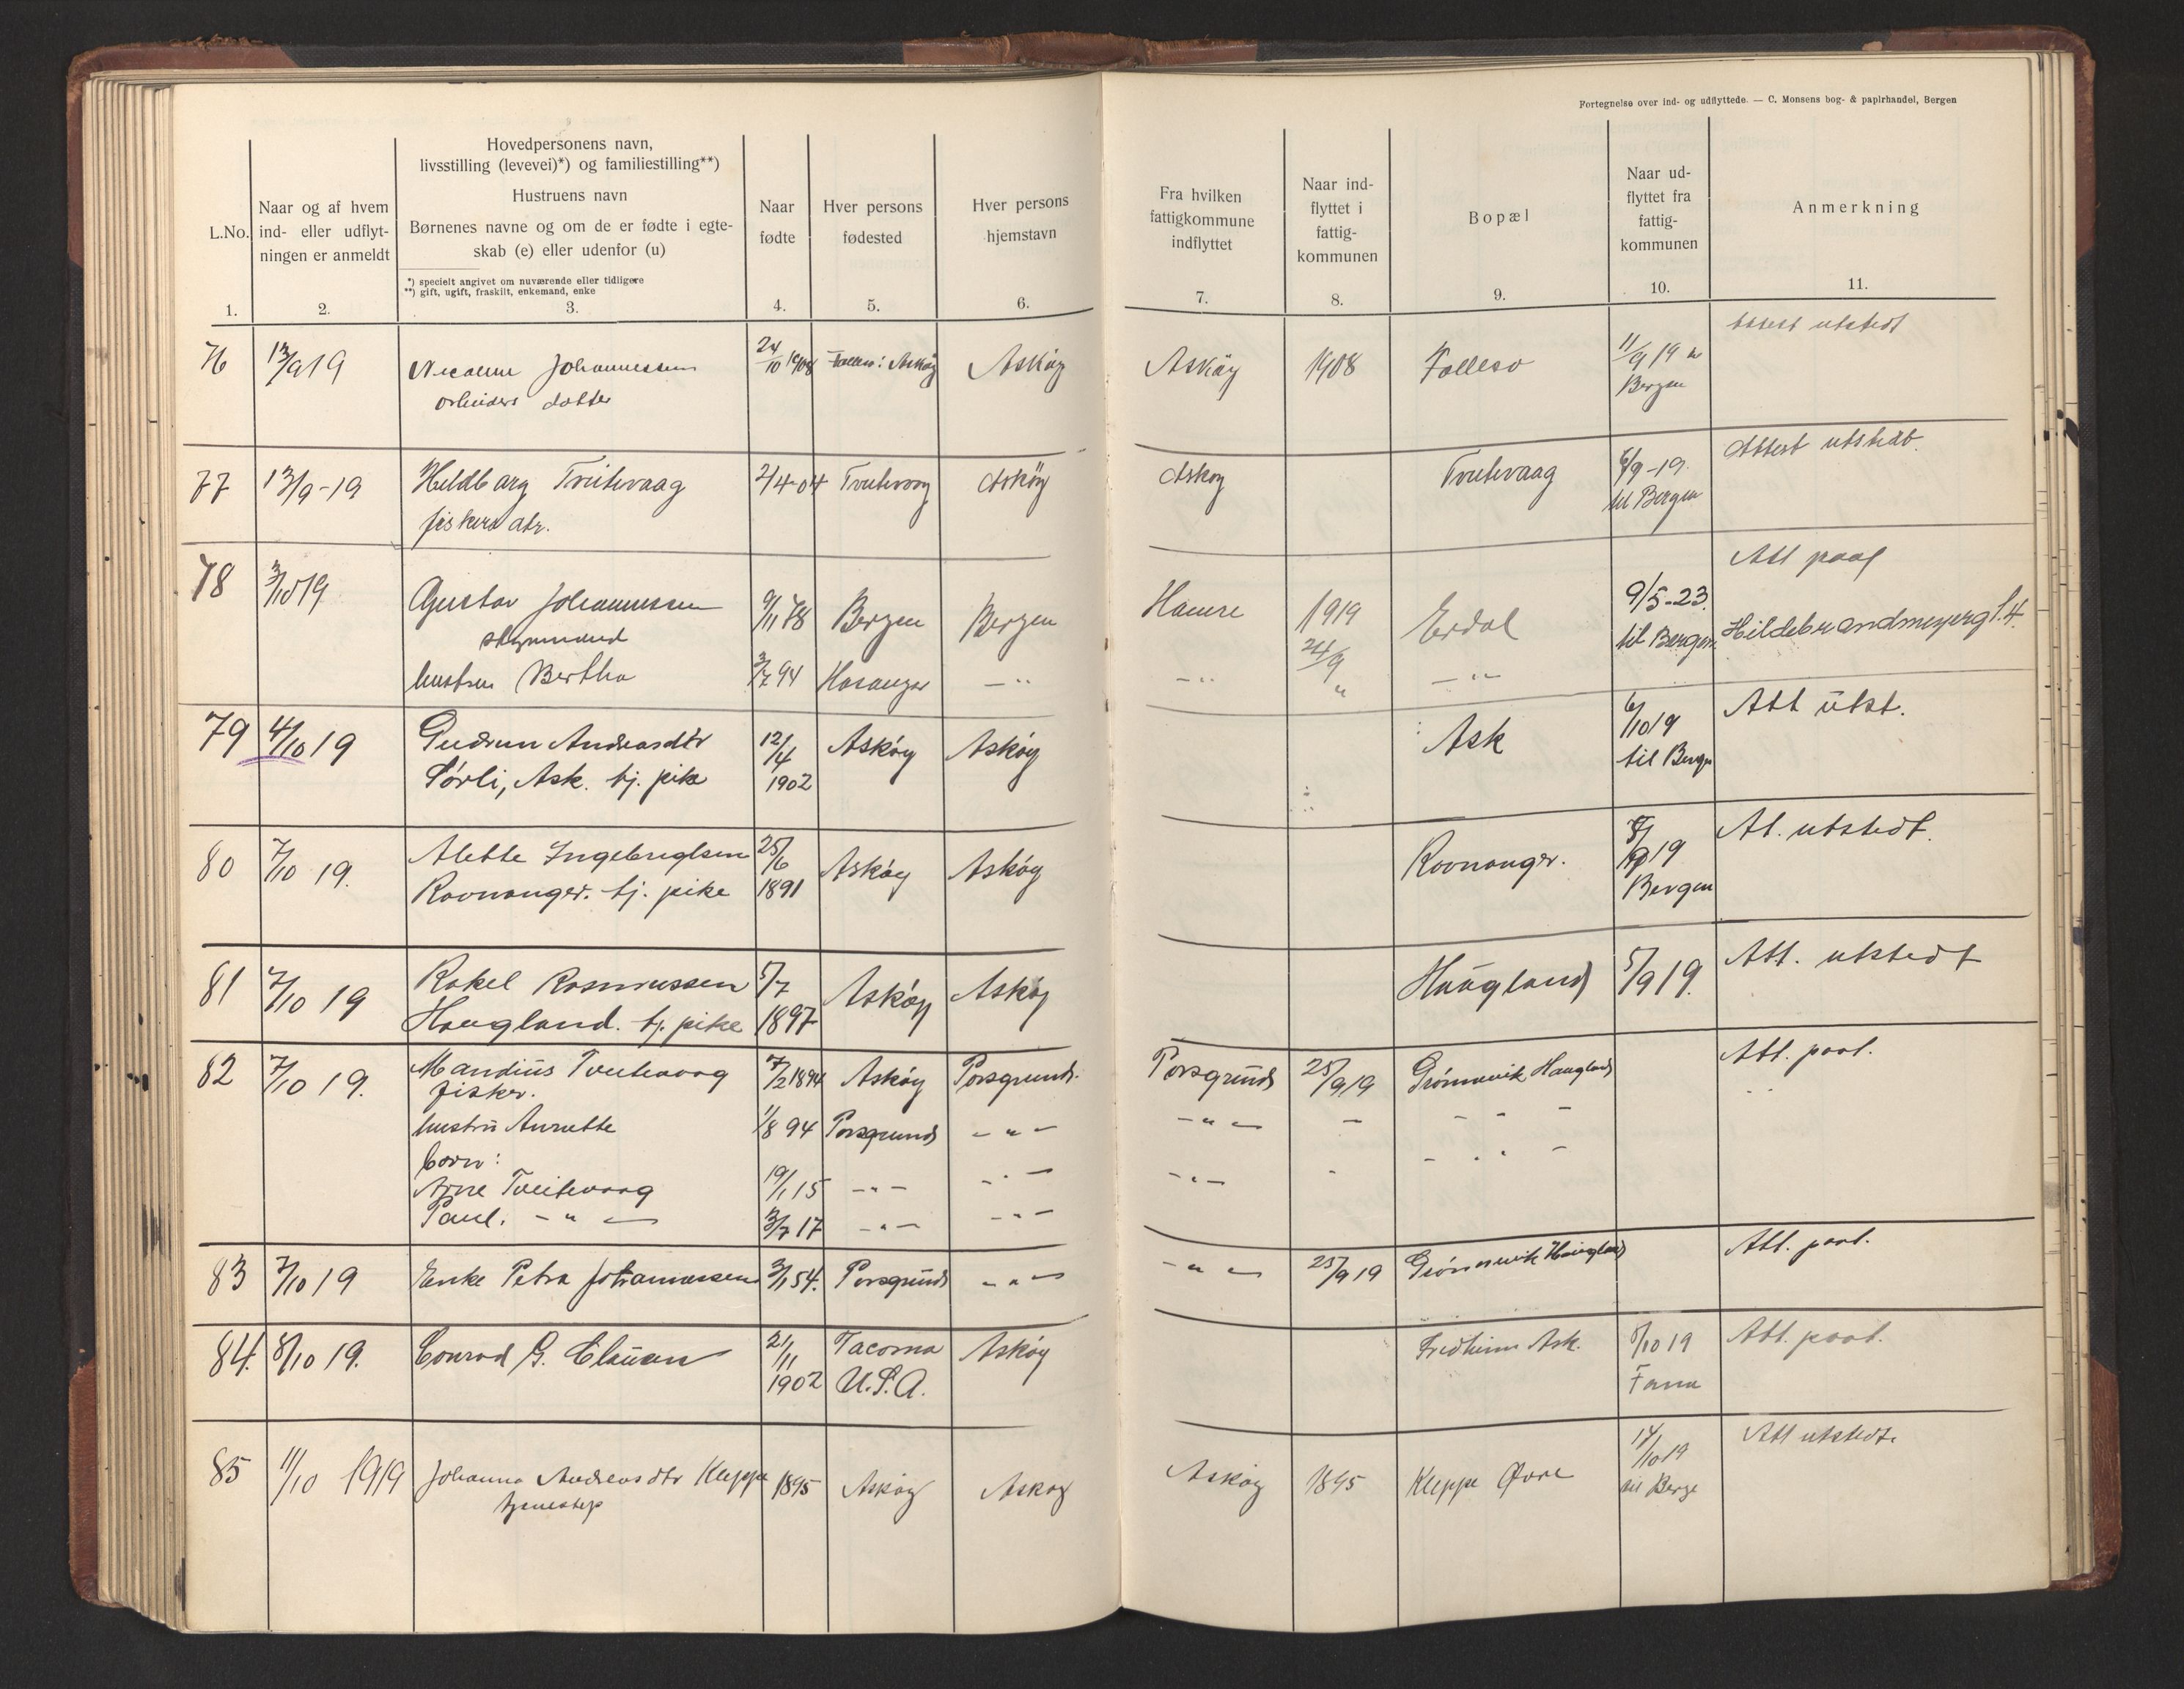 Fortegnelse over ind- og udflyttede. — C. Monsens bog- & papirhandel, Bergen
L.No.
1.
Naar og af hvem
ind- eller udflyt-
ningen er anmeldt
2.
Hovedpersonens navn,
livsstilling (levevei)*) og familiestilling**)
Hustruens navn
Børnenes navne og om de er fødte i egte-
skab (e) eller udenfor (u)
*) specielt angivet om nuværende eller tidligere
**) gift, ugift, fraskilt, enkemand, enke
3.
Naar
fødte
4.
Hver persons
fødested
5.
Hver persons
hjemstavn
6.
Fra hvilken
fattigkommune
indflyttet
7.
Naar ind-
flyttet i
fattig-
kommunen
8.
Bopæl
9.
Naar ud-
flyttet fra
fattig-
kommunen
10.
Anmerkning
11.
76 13/9 19 Johannessen 24/10 1908 Askøy Askøy Askøy 1908 Follesø 11/9 19 utstedt
datter Bergen
77 13/9-19 Hildborg Tveitevaag 2/4-04 Tveitevaag Askøy Askøy Tveitevaag 6/9-19 Attest utstedt
fiskers dtr. til Bergen
78 3/10 19 Gustav Johannessen 9/11 78 Bergen Bergen Hamre 1919 Erdal 9/5-23. Att paal
styrmand 24/9 til Bergen Hildebrandmeyergt. 4.
hustru Bertha 3/7 94 Hosanger — " — " " — " —
79 4/10 19 Gudrun Andreasdtr 12/4 Askøy Askøy Ask 6/10 19 Att utst.
Sörli, Ask. tj. pike 1902 til Bergen
80 7/10 19. Alette Ingebrigtsen 25/6 Askøy Askøy Ravnanger. 19 At. utstedt.
Ravnanger. tj. pike 1891 Bergen
81 7/10 19 Rakel Rasmussen 5/7 Askøy Askøy Haugland 5/9 19. Att. utstedt
Haugland. tj. pike 1897
82 7/10 19. Mandius Tveitevaag 7/2 1894 Askøy Porsgrund. Porsgrund 25/9 19 Grönnevik Haugland Att. paat.
fisker.
hustru Annette 1/8 94 Porsgrund — " — — " — — - - -
born:
Arne Tveitevaag 19/1 15 — " — — " — — " — - - " -
Paul. — " — 3/7 17 — " — — " —
83 7/10 19 Enke Petra Johannessen 3/1 54. Porsgrund — " — — " — 25/9 19 Grönnevik Haugland Att. paat.
84. 8/10 19. Conrad G. Clausen 21/11 Tacoma Askøy Fredheim Ask. 8/10 19 Att. paat.
1902 U.S.A. Fana
85 11/10 1919 Johanna Andreasdtr Kleppe 1895 Askøy Askøy Askøy 1895 Kleppe Øvre 14/10 19 Att utstedt.